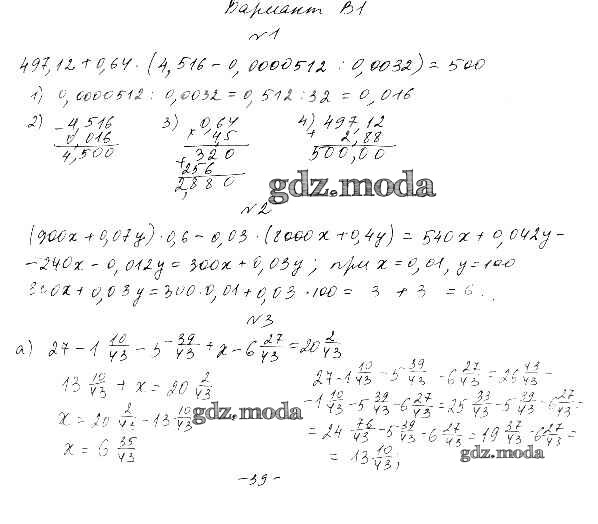 Вариант В1
№1
497,12 + 0,64 · (4,516 - 0,0000512 : 0,0032) = 500
1) 0,0000512 : 0,0032 = 0,512 : 32 = 0,016
2) - 4,516 3) × 0,64 4) + 497,12
0,016 4,5 2,88
4,500 320 500,00
+ 256
2,880
gdz.moda
№2
(900x + 0,07y) · 0,6 - 0,03 · (8000x + 0,4y) = 540x + 0,042y -
- 240x - 0,012y = 300x + 0,03y; при x = 0,01, y = 100
300x + 0,03y = 300 · 0,01 + 0,03 · 100 = 3 + 3 = 6.
№3
а) 27 - 1 10/43 - 5 39/43 + x - 6 27/43 = 20 2/43
13 10/43 + x = 20 2/43
x = 20 2/43 - 13 10/43
x = 6 35/43
27 - 1 10/43 - 5 39/43 - 6 27/43 = 26 43/43 -
- 1 10/43 - 5 39/43 - 6 27/43 = 25 33/43 - 5 39/43 - 6 27/43 =
= 24 76/43 - 5 39/43 - 6 27/43 = 19 37/43 - 6 27/43 =
= 13 10/43;
gdz.moda
gdz.moda
- 39 -